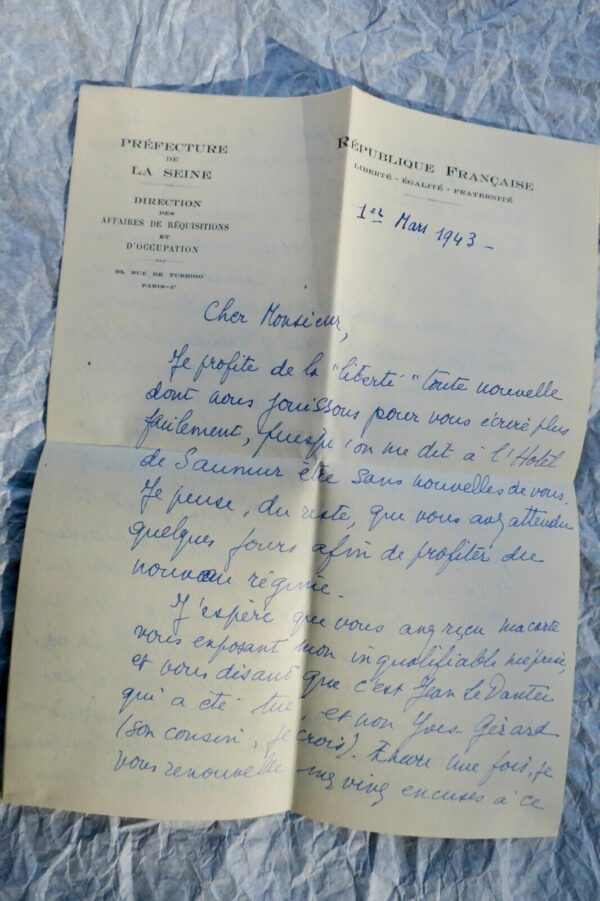 PRÉFECTURE
DE
LA SEINE
DIRECTION
DES
AFFAIRES DE RÉQUISITIONS
ET
D'OCCUPATION
50, RUE DE TURBIGO
PARIS-3e
RÉPUBLIQUE FRANÇAISE
LIBERTÉ - ÉGALITÉ - FRATERNITÉ
1er Mars 1943 -
Cher Monsieur,
Je profite de la "liberté" toute nouvelle
dont nous jouissons pour vous écrire plus
facilement, puisqu'on me dit à l'Hotel
de Saumur être sans nouvelles de vous.
Je pense, du reste, que vous avez attendu
quelques jours afin de profiter du
nouveau régime.
J'espère que vous avez reçu ma carte
vous exposant mon inqualifiable méprise,
et vous disant que c'est Jean Le Dantec
qui a été tué, et non Yves Gérard
(son cousin, je crois). Encore une fois, je
vous renouvelle mes vives excuses à ce